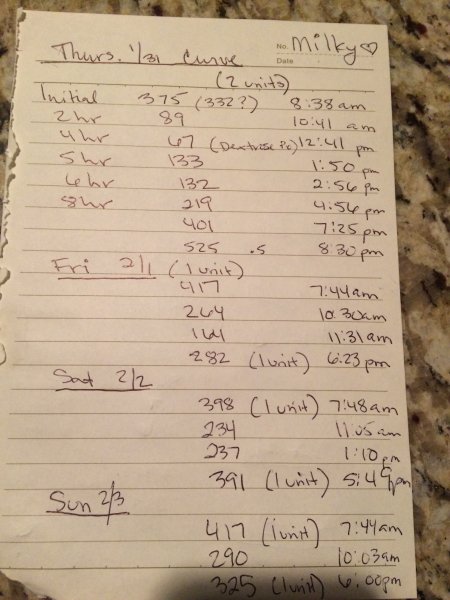 No. Milky♡
Thurs. 1/31 Curve
Date
(2 units)
Initial 375 (332?) 8:38 am
2 hr 89 10:41 am
4 hr 67 (Dextrose inj) 12:41 pm
5 hr 133 1:50 pm
6 hr 132 2:56 pm
8hr 219 4:56 pm
401 7:25 pm
525 .5 8:30 pm
Fri 2/1 (1 unit)
417 7:44am
264 10:30am
164 11:31 am
282 (1 unit) 6:23 pm
Sat 2/2
398 (1 unit) 7:48am
234 11:05 am
237 1:10 pm
391 (1 unit) 5:49pm
Sun 2/3
417 (1 unit) 7:44am
290 10:03am
325 (1 unit) 6:00pm